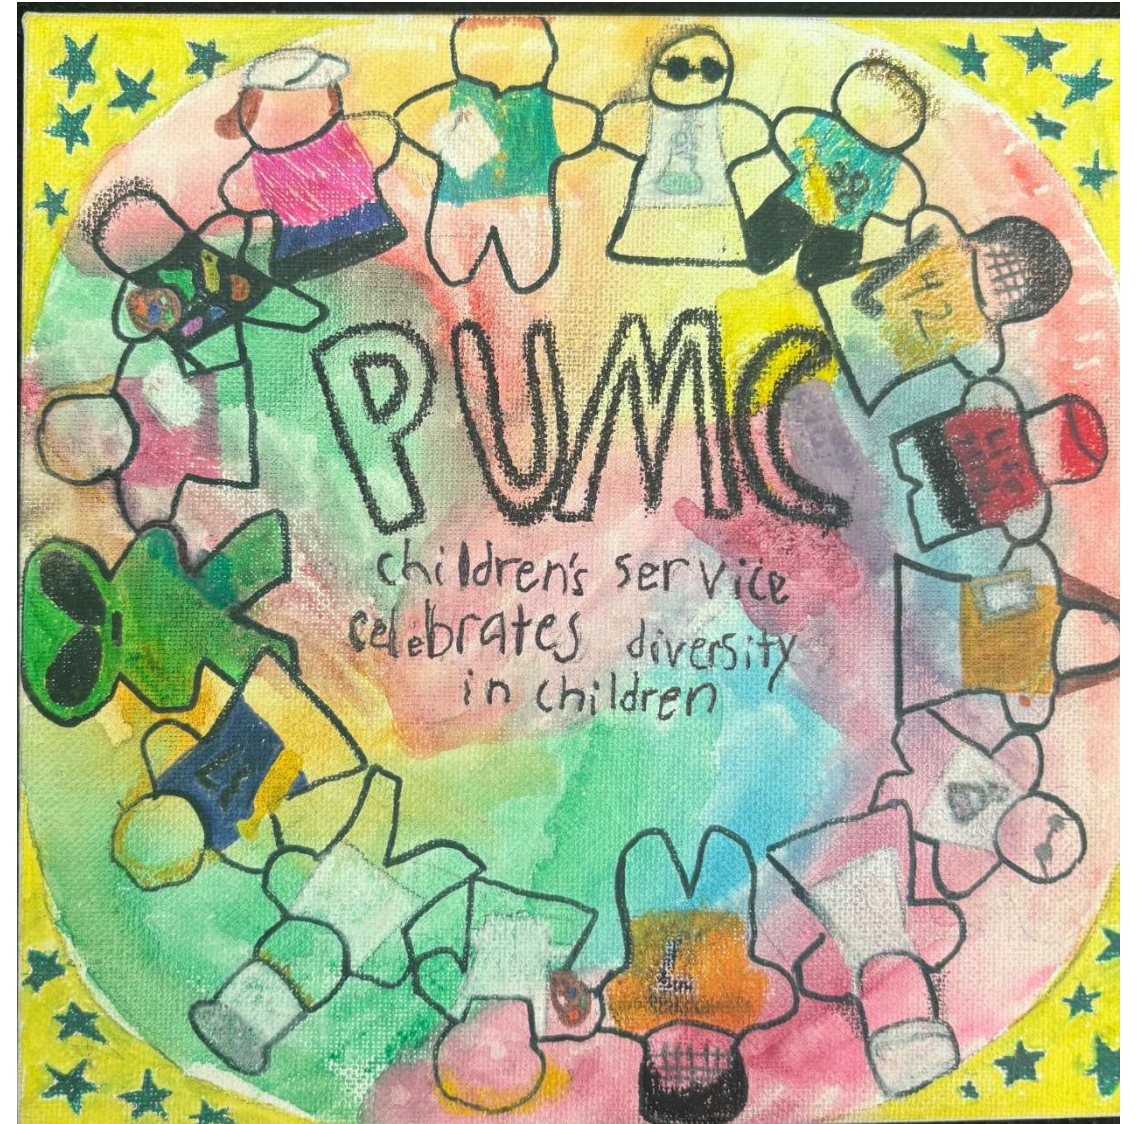 PUMC
children's service
celebrates diversity
in children
42
L